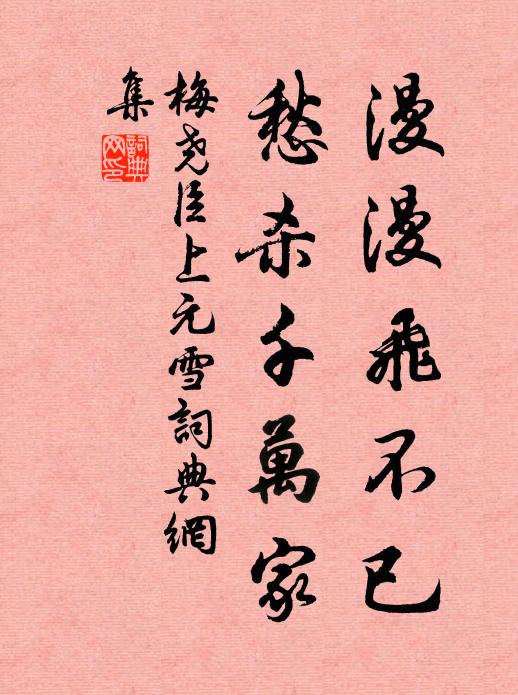 漫漫飛不已
愁杀千萬家
梅尧臣上元雪詞典網
集
詞典
网印